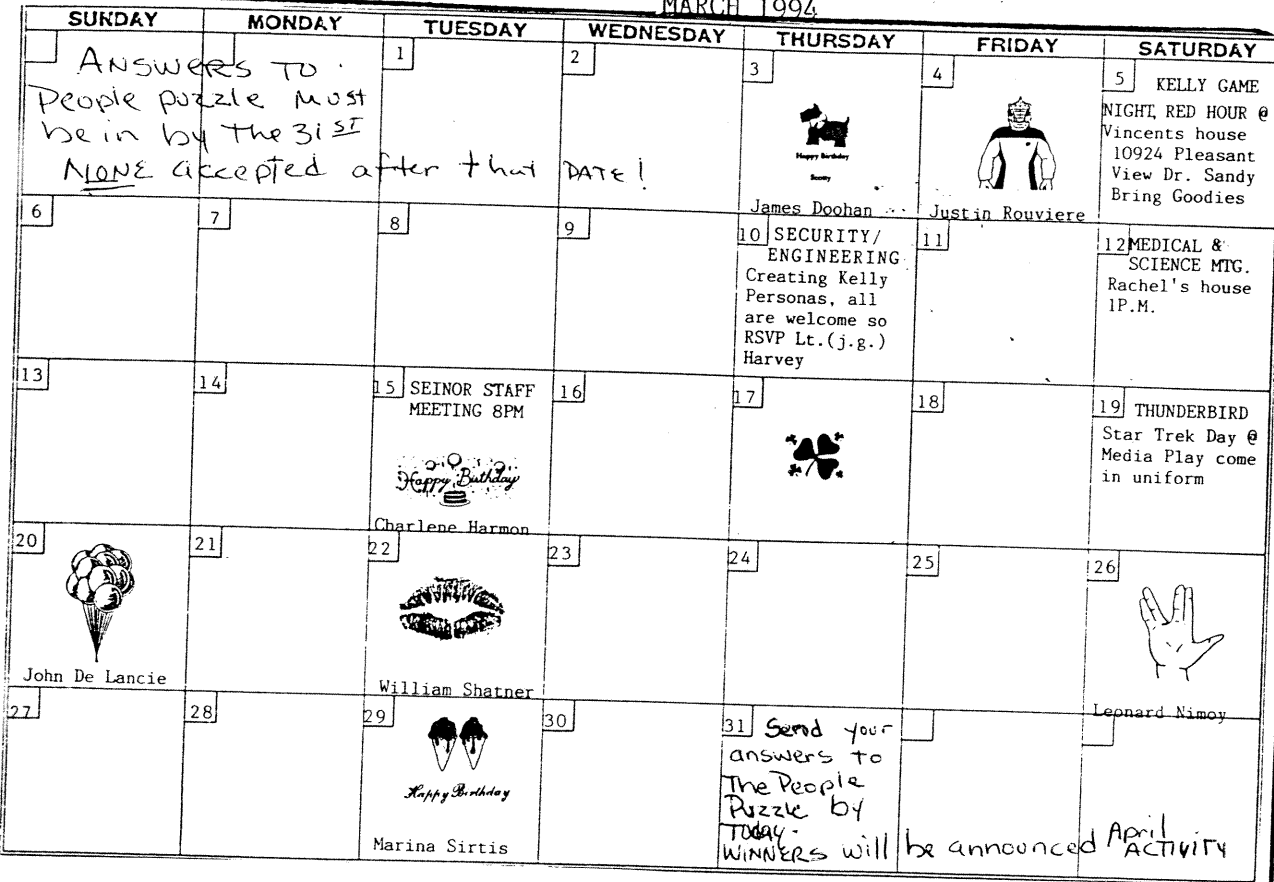 MARCH 1994
SUNDAY MONDAY TUESDAY WEDNESDAY THURSDAY FRIDAY SATURDAY
ANSWERS TO
People puzzle Must
be in by the 31ST
NONE accepted after that DATE!
1
2
3
Happy Birthday
Scotty
James Doohan
4
Justin Rouviere
5 KELLY GAME
NIGHT, RED HOUR @
Vincents house
10924 Pleasant
View Dr. Sandy
Bring Goodies
6
7
8
9
10 SECURITY/
ENGINEERING
Creating Kelly
Personas, all
are welcome so
RSVP Lt.(j.g.)
Harvey
11
12 MEDICAL &
SCIENCE MTG.
Rachel's house
1P.M.
13
14
15 SEINOR STAFF
MEETING 8PM
Happy Birthday
Charlene Harmon
16
17
18
19 THUNDERBIRD
Star Trek Day @
Media Play come
in uniform
20
John De Lancie
21
22
William Shatner
23
24
25
26
Leonard Nimoy
27
28
29
Happy Birthday
Marina Sirtis
30
31 Send your
answers to
The People
Puzzle by
Today.
WINNERS will be announced April
ACTIVITY